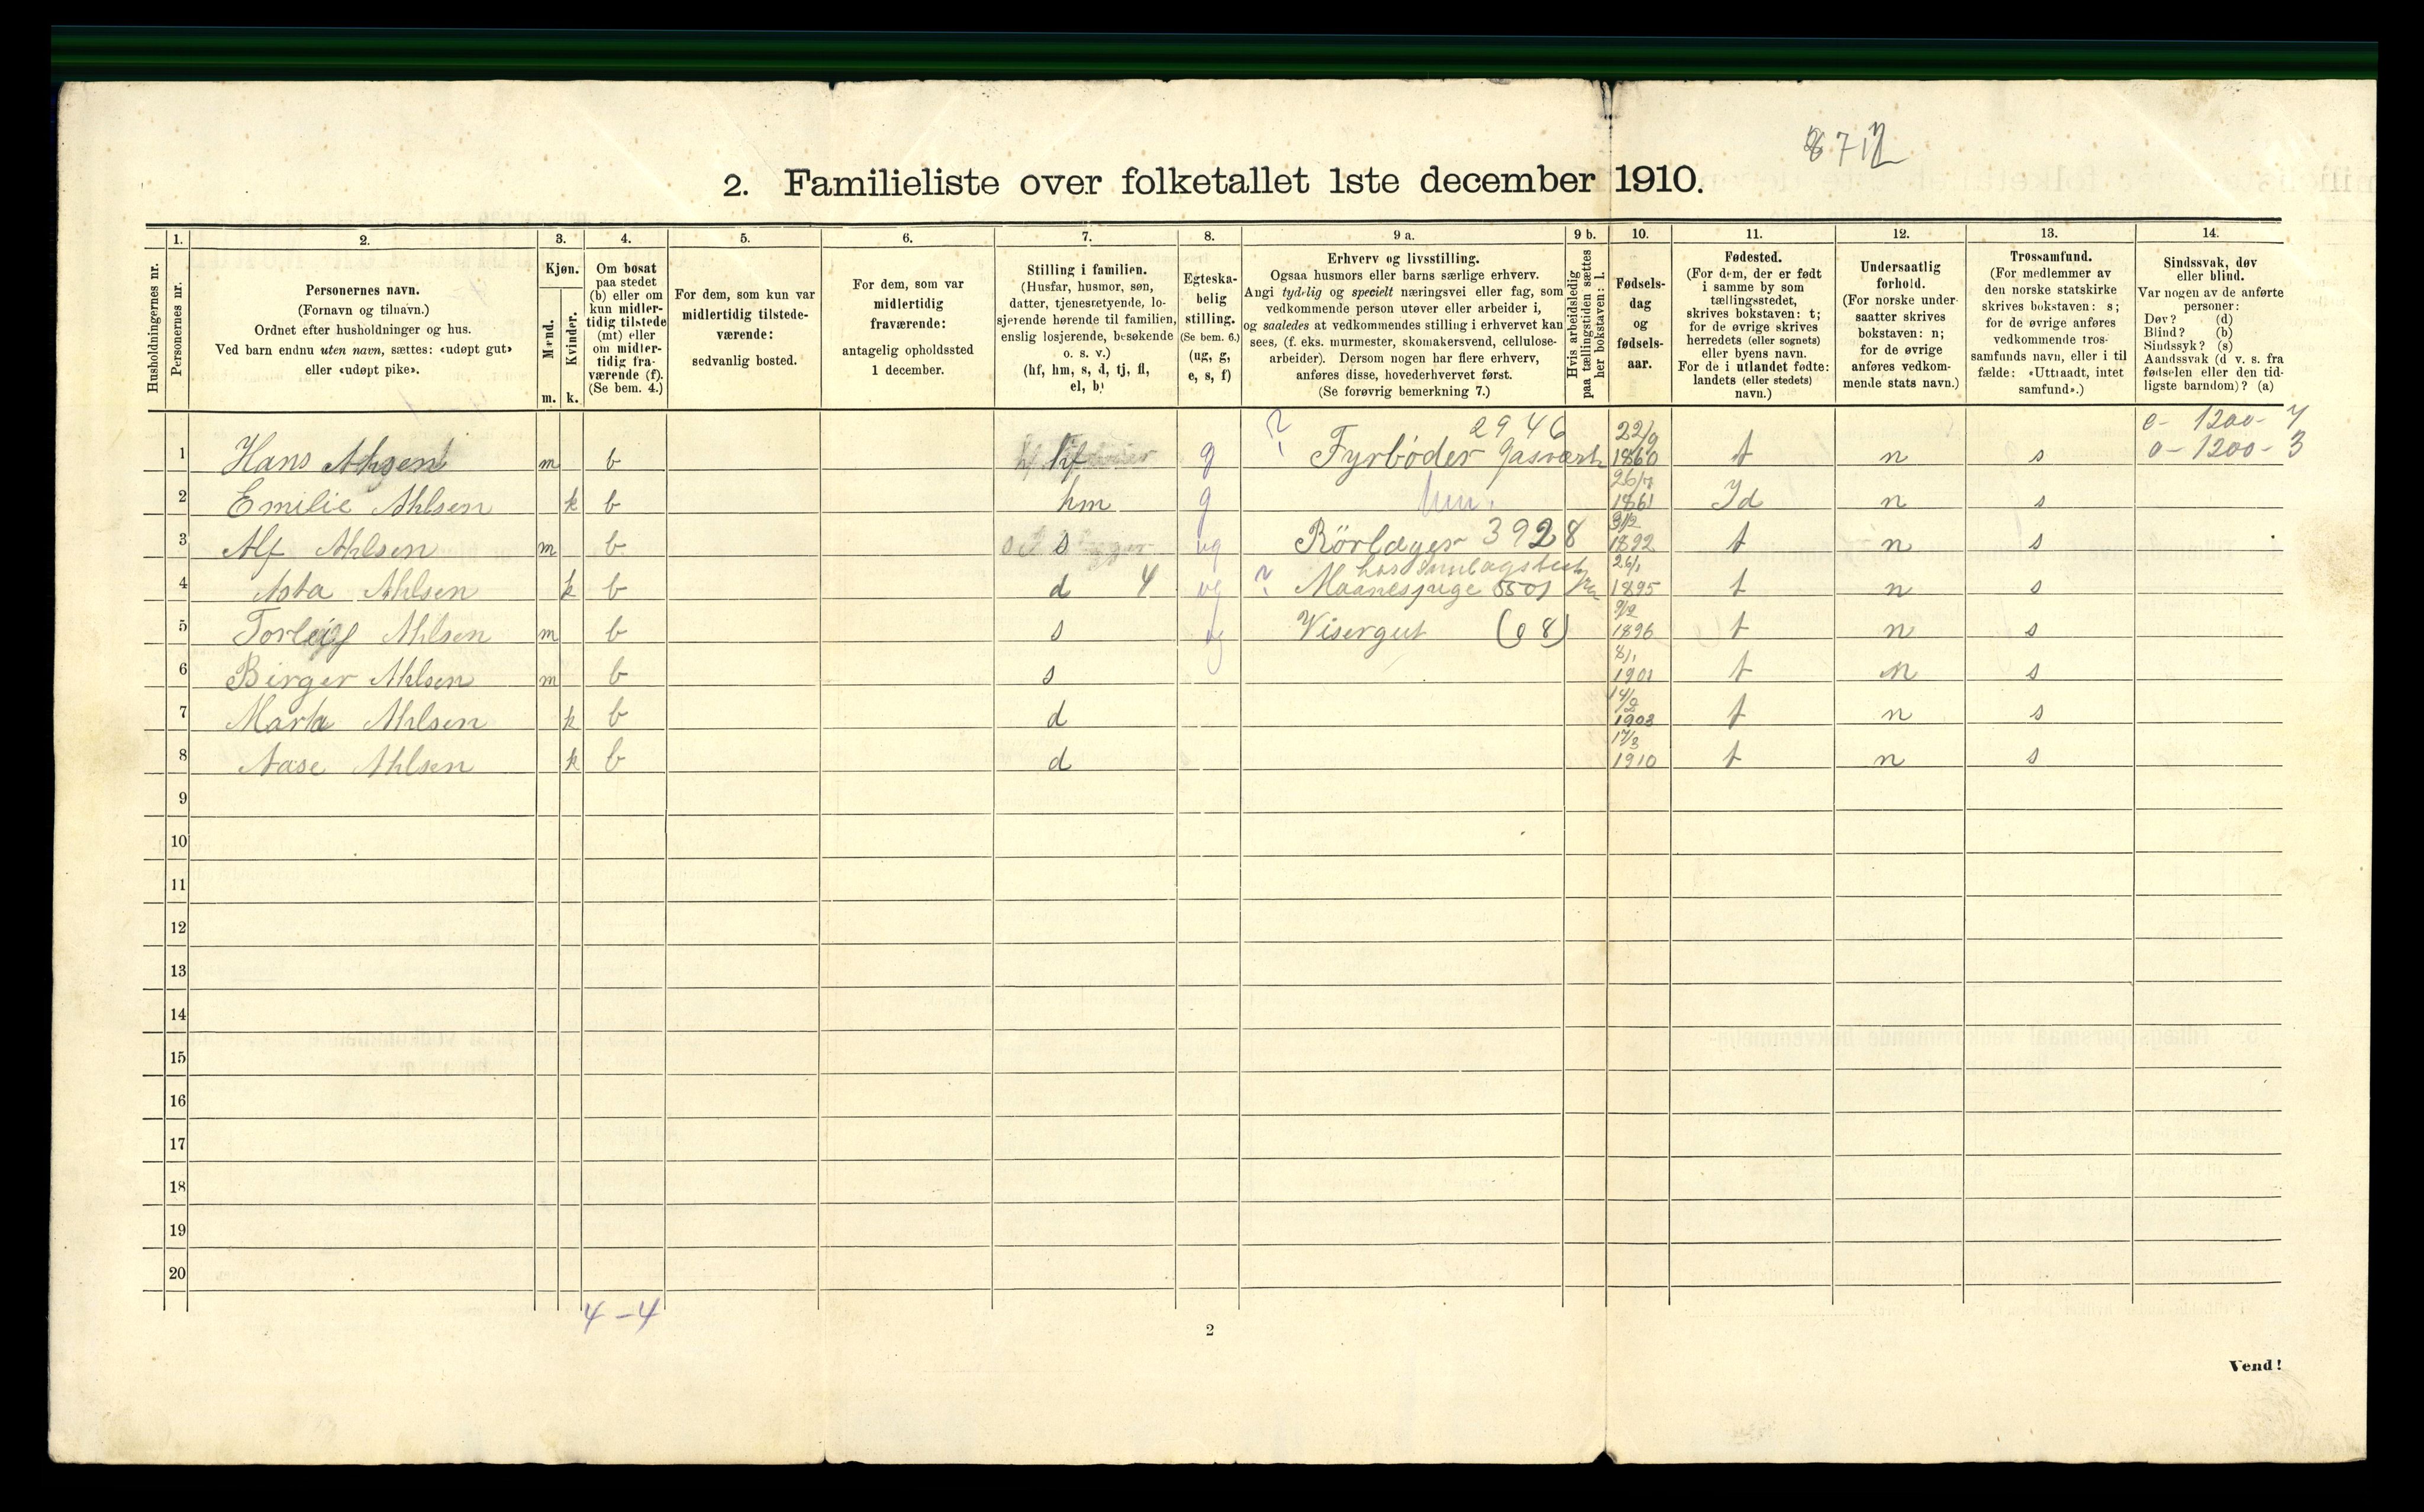 8712
2. Familieliste over folketallet 1ste december 1910.
Husholdningernes nr.
1.
Personernes nr.
2.
Personernes navn.
(Fornavn og tilnavn.)
Ordnet efter husholdninger og hus.
Ved barn endnu uten navn, sættes: «udøpt gut»
eller «udøpt pike».
3.
Kjøn.
Mænd.
Kvinder.
m. k.
4.
Om bosat
paa stedet
(b) eller om
kun midler-
tidig tilstede
(mt) eller
om midler-
tidig fra-
værende (f).
(Se bem. 4.)
5.
For dem, som kun var
midlertidig tilstede-
værende:
sedvanlig bosted.
6.
For dem, som var
midlertidig
fraværende:
antagelig opholdssted
1 december.
7.
Stilling i familien.
(Husfar, husmor, søn,
datter, tjenestetyende, lo-
sjerende hørende til familien,
enslig losjerende, besøkende
o. s. v.)
(hf, hm, s, d, tj, fl,
el, b)
8.
Egteska-
belig
stilling.
(Se bem. 6.)
(ug, g,
e, s, f)
9 a.
Erhverv og livsstilling.
Ogsaa husmors eller barns særlige erhverv.
Angi tydelig og specielt næringsvei eller fag, som
vedkommende person utøver eller arbeider i,
og saaledes at vedkommendes stilling i erhvervet kan
sees, (f. eks. murmester, skomakersvend, cellulose-
arbeider). Dersom nogen har flere erhverv,
anføres disse, hovederhvervet først.
(Se forøvrig bemerkning 7.)
9 b.
Hvis arbeidsledig
paa tællingstiden sættes
her bokstaven: l.
10.
Fødsels-
dag
og
fødsels-
aar.
11.
Fødested.
(For dem, der er født
i samme by som
tællingsstedet,
skrives bokstaven: t;
for de øvrige skrives
herredets (eller sognets)
eller byens navn.
For de i utlandet fødte:
landets (eller stedets)
navn.)
12.
Undersaatlig
forhold.
(For norske under-
saatter skrives
bokstaven: n;
for de øvrige
anføres vedkom-
mende stats navn.)
13.
Trossamfund.
(For medlemmer av
den norske statskirke
skrives bokstaven: s;
for de øvrige anføres
vedkommende tros-
samfunds navn, eller i til-
fælde: «Uttraadt, intet
samfund».)
14.
Sindssvak, døv
eller blind.
Var nogen av de anførte
personer:
Døv? (d)
Blind? (b)
Sindssyk? (s)
Aandssvak (d v. s. fra
fødselen eller den tid-
ligste barndom)? (a)
? 2946 22/9 0- 1200- 4
1 Hans Ahlsen m b hf g Fyrbøder Gasværk 1860 t n s 0- 1200- 3
26/7
2 Emilie Ahlsen k b hm g 1861 Id n s
3 Alf Ahlsen m b s ug Rörlægger 3928 1892 t n s
hos 26/1
4 Asta Ahlsen k b d 4 ug ? 5501 1895 t n s
9/12
5 Torleif Ahlsen m b s ug Visergut (08) 1896 t n s
8/1
6 Birger Ahlsen m b s 1901 t n s
14/2
7 Marta Ahlsen k b d 1903 t n s
17/3
8 Aase Ahlsen k b d 1910 t n s
9
10
11
12
13
14
15
16
17
18
19
20
4-4
2
Vend!